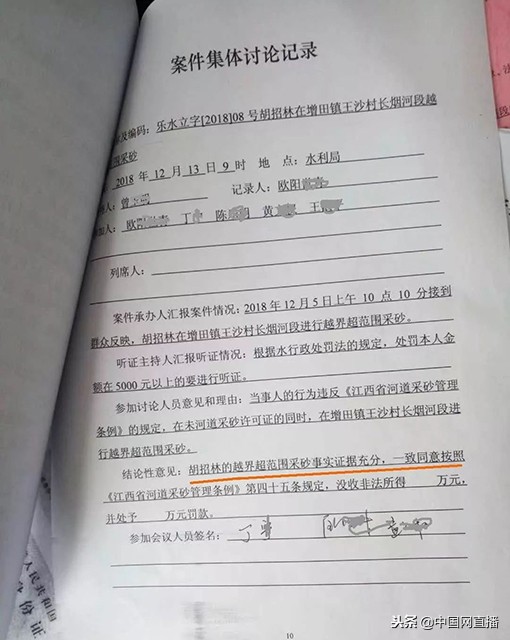 案件集体讨论记录
及编码:乐水立字[2018]08 号胡招林在增田镇王沙村长烟河段越
围采砂
2018 年 12 月 13 日 9 时 地 点:水利局
人:曾 记录人:欧阳
人:欧阳 丁 陈 黄 王
列席人:
案件承办人汇报案件情况:2018 年 12 月 5 日上午 10 点 10 分接到
群众反映,胡招林在增田镇王沙村长烟河段进行越界超范围采砂。
听证主持人汇报听证情况:根据水行政处罚法的规定,处罚本人金
额在 5000 元以上的要进行听证。
参加讨论人员意见和理由:当事人的行为违反《江西省河道采砂管理
条例》的规定,在未河道采砂许可证的同时,在增田镇王沙村长烟河段进
行越界超范围采砂。
结论性意见:胡招林的越界超范围采砂事实证据充分,一致同意按照
《江西省河道采砂管理条例》第四十五条规定,没收非法所得 万元,
并处予 万元罚款。
参加会议人员签名:丁
10
人民共和国
身份证
头条 @中国网直播